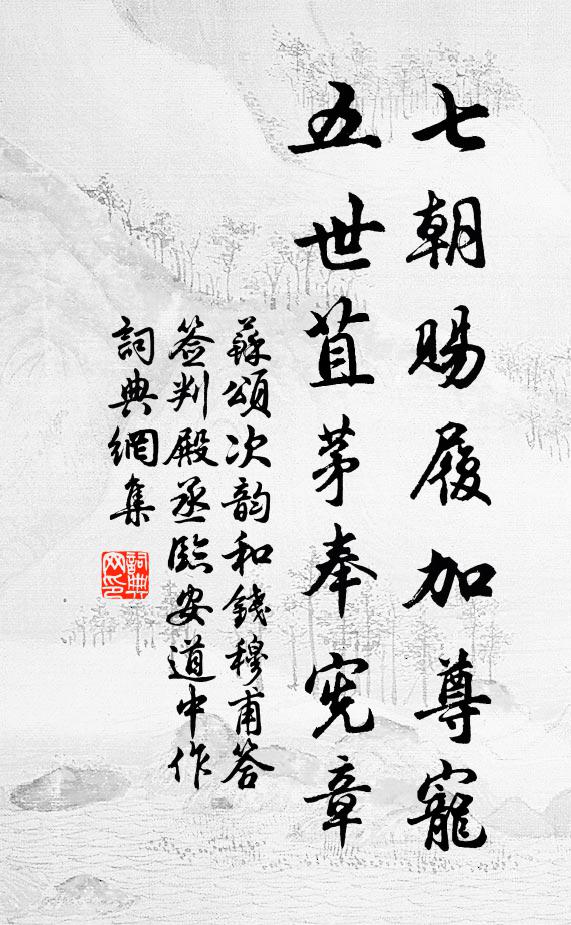 七朝賜履加尊寵
五世苴茅奉憲章
蘇頌次韵和錢穆甫答
签判殿丞臨安道中作
詞典網集
詞典网印